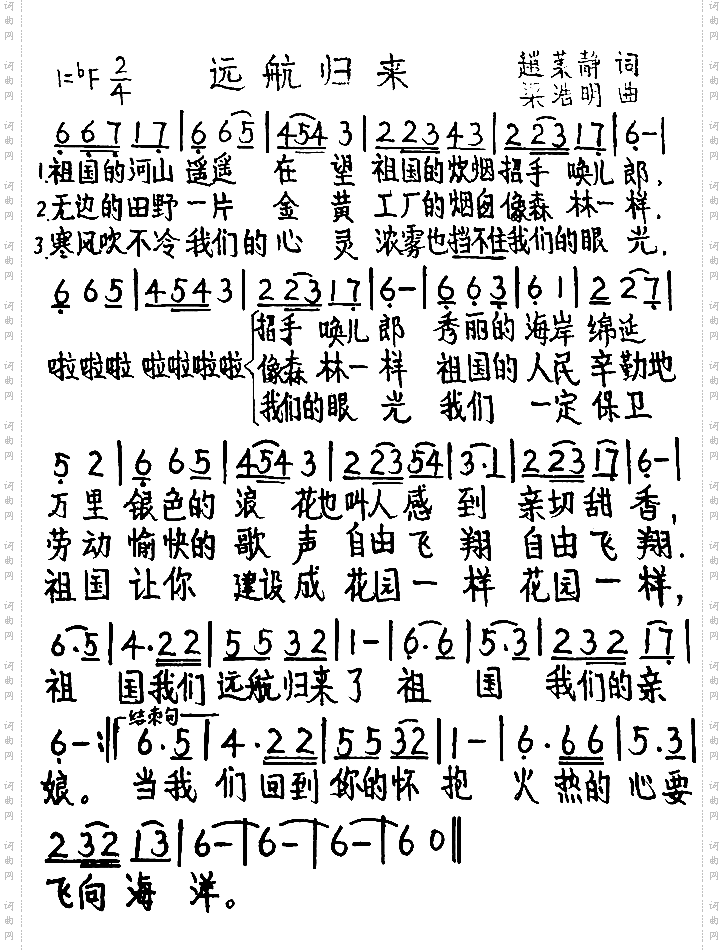 1=♭F 2/4 远航归来 趙萊静 词
梁浩明 曲
6 6 7 1 7 | 6 6 5 | 4 5 4 3 | 2 2 3 4 3 | 2 2 3 1 7 | 6 - |
1.祖国的河山 遥遥 在 望 祖国的炊烟招手 唤儿郎,
2.无边的田野一片 金 黄 工厂的烟囱像森 林一样.
3.寒风吹不冷我们的心 灵 浓雾也挡不住我们的眼 光,
6 6 5 | 4 5 4 3 | 2 2 3 1 7 | 6 - | 6 6 3 | 6 1 | 2 2 7 |
招手 唤儿郎 秀丽的海岸 绵延
啦啦啦 啦啦啦啦 像森 林一样 祖国的人民 辛勤地
我们的眼 光 我们 一定 保卫
5 2 | 6 6 5 | 4 5 4 3 | 2 2 3 5 4 | 3 · 1 | 2 2 3 1 7 | 6 - |
万里 银色的 浪 花也叫人感 到 亲切甜 香,
劳动 愉快的 歌 声 自由飞 翔 自由飞 翔.
祖国 让你 建设成 花园一 样 花园一 样,
6 · 5 | 4 · 2 2 | 5 5 3 2 | 1 - | 6 · 6 | 5 · 3 | 2 3 2 1 7 |
祖 国我们 远航归来了 祖 国 我们的亲
结束句
6 - :‖ 6 · 5 | 4 · 2 2 | 5 5 3 2 | 1 - | 6 · 6 6 | 5 . 3 |
娘。 当我 们 回到 你的怀 抱 火 热的 心要
2 3 2 1 3 | 6 - | 6 - | 6 - | 6 0 ‖
飞向 海 洋。
词曲网